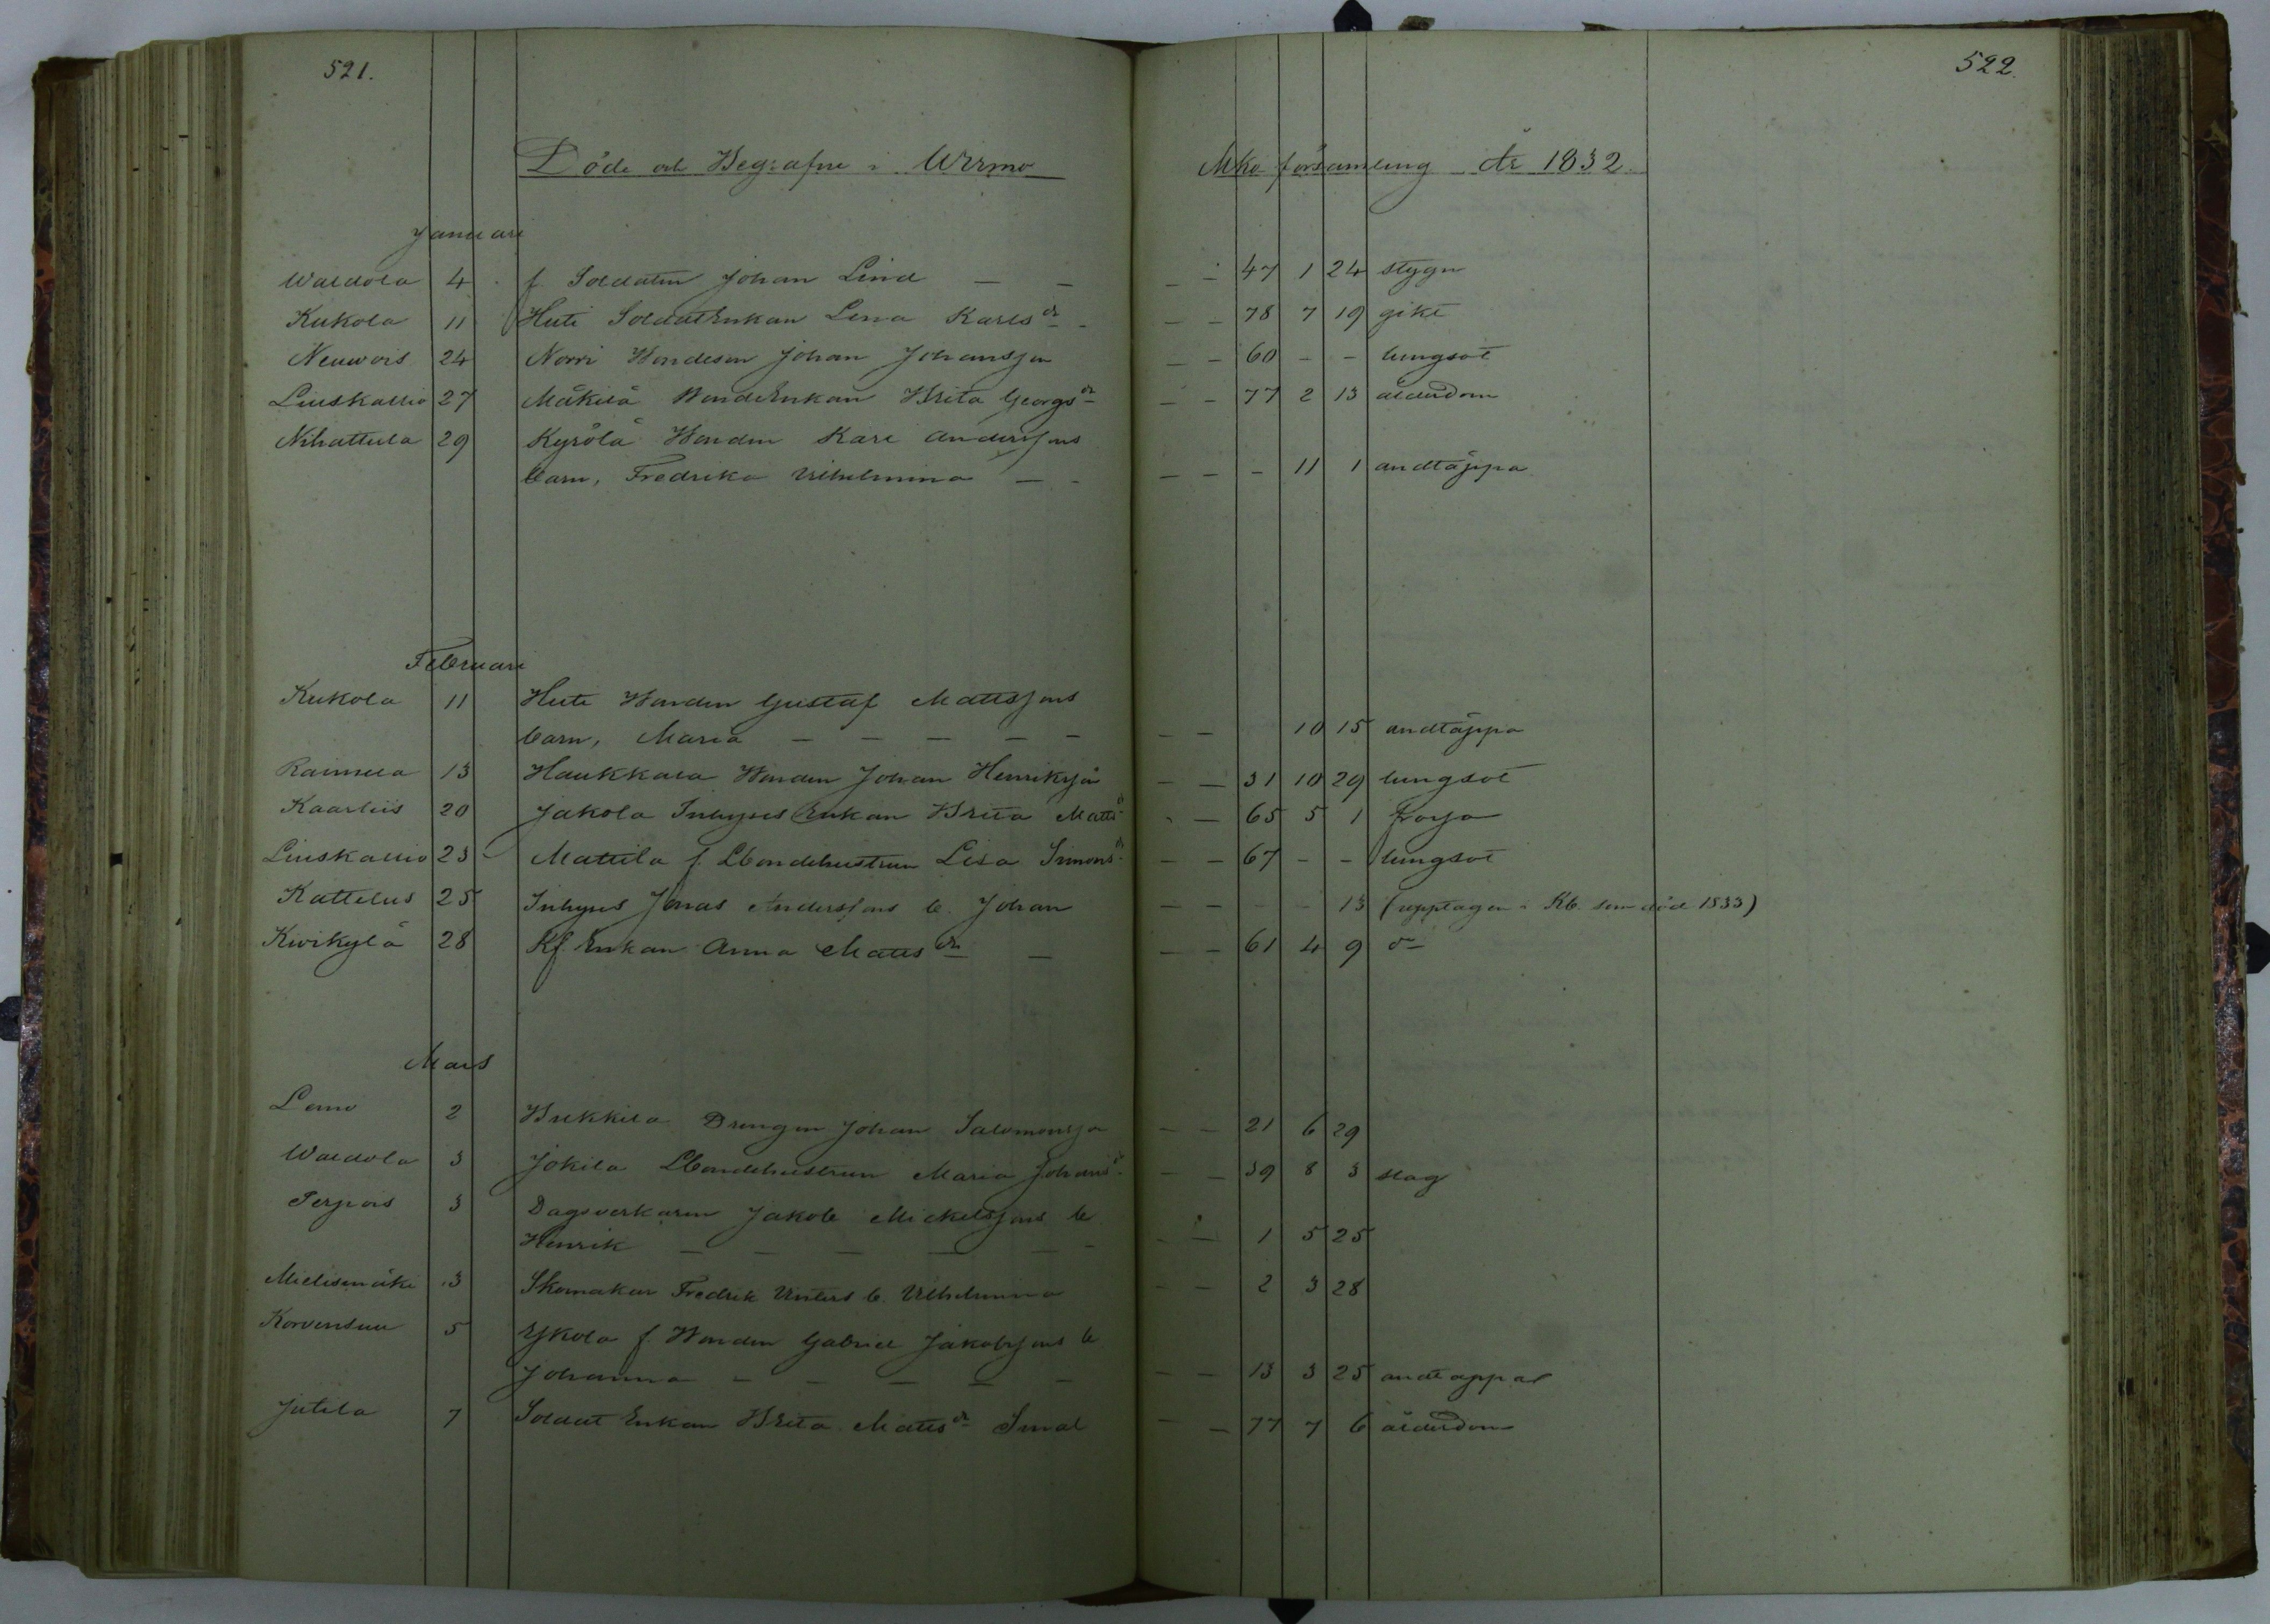 521.
522.
Döde och Begrafne i Wirmo Mko församling År 1832.
Januari
Waldola 4 f. Soldaten Johan Lind — — — — 47 1 24 stygn
Kukola 11 Huti SoldatEnkan Lena Karlsdr — — 78 7 19 gikt
Neuwois 24 Norri Bondeson Johan Johansson — 60 - - lungsot
Liuskallio 27 Mäkilä BondeEnkan Brita Georgsdr — — 77 2 13 ålderdom
Nihattula 29 Kyrölä Bonden Karl Anderssons
barn, Fredrika Vilhelmina — — — — - 11 1 andtäppa
Februari
Kukola 11 Huti Bonden Gustaf Mattssons
barn, Maria — — — — — — — 10 15 andtäppa
Raimela 13 Haukkala Bonden Johan Henrikss — — 31 10 29 lungsot
Kaarliis 20 Jakola Inhyses Enkan Brita Mattsdr — 65 5 1 frossa
Liuskallio 23 Mattila f. Lbondehustrun Lisa Simonsdr — — 67 - - lungsot
Kattelus 25 Inhyses Jonas Anderssons b. Johan — — - - 13 (upptagen i Kb. som död 1833)
Kivikylä 28 Kf. Enkan Anna Mattsdr — — — 61 4 9 do
Mars
Lemo 2 Bukkila Drängen Johan Salomonss — — 21 6 29
Waldola 3 Jokila Lbondehustrun Maria Johansdr — — 39 8 3 slag
Perpois 3 Dagsverkaren Jakob Mickelssons b.
Henrik — — — — — — — 1 5 25
Mielismäki 3 Skomakar Fredrik b. Vilhelmina — — 2 3 28
Korvensuu 5 Yskola f. Bonden Gabriel Jakobssons b.
Johanna — — — — — — — 13 3 25 andtäppa
Jutila 7 Soldat Enkan Brita Mattsdr Smal — — 77 7 6 ålderdom